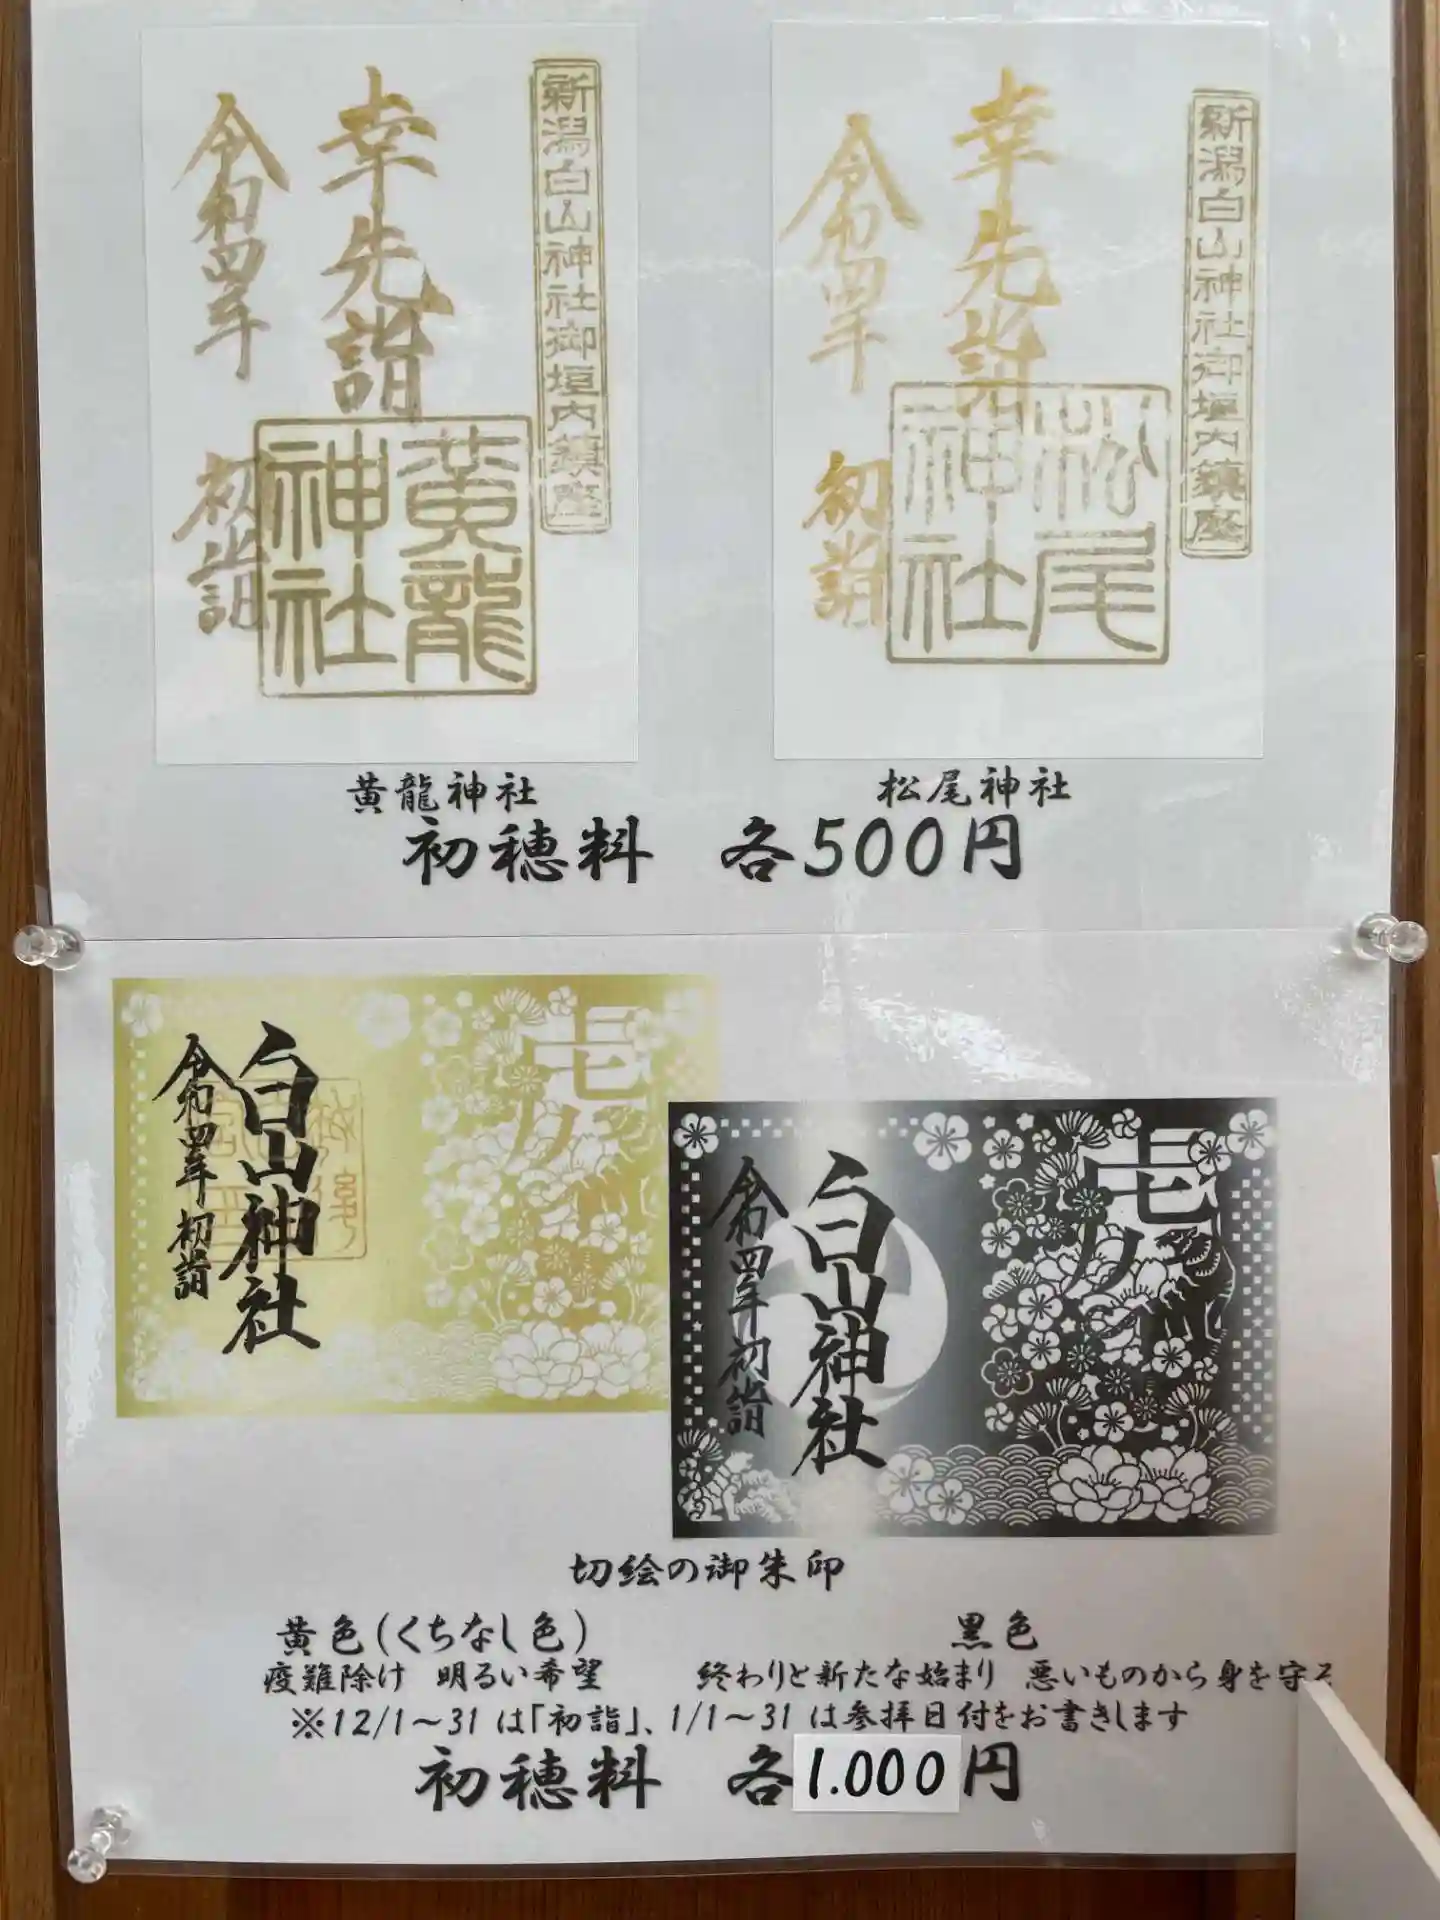 新潟白山神社御垣内鎮座
幸先詣
令和四年 初詣
黄龍神社
新潟白山神社御垣内鎮座
幸先詣
令和四年 初詣
松尾神社
黄龍神社
松尾神社
初穂料 各500円
壱
白山神社
令和四年 初詣
壱
白山神社
令和四年 初詣
切絵の御朱印
黄色(くちなし色)
黒色
疫難除け 明るい希望
終わりと新たな始まり 悪いものから身を守る
※12/1~31は「初詣」、1/1~31は参拝日付をお書きします
初穂料 各1.000円